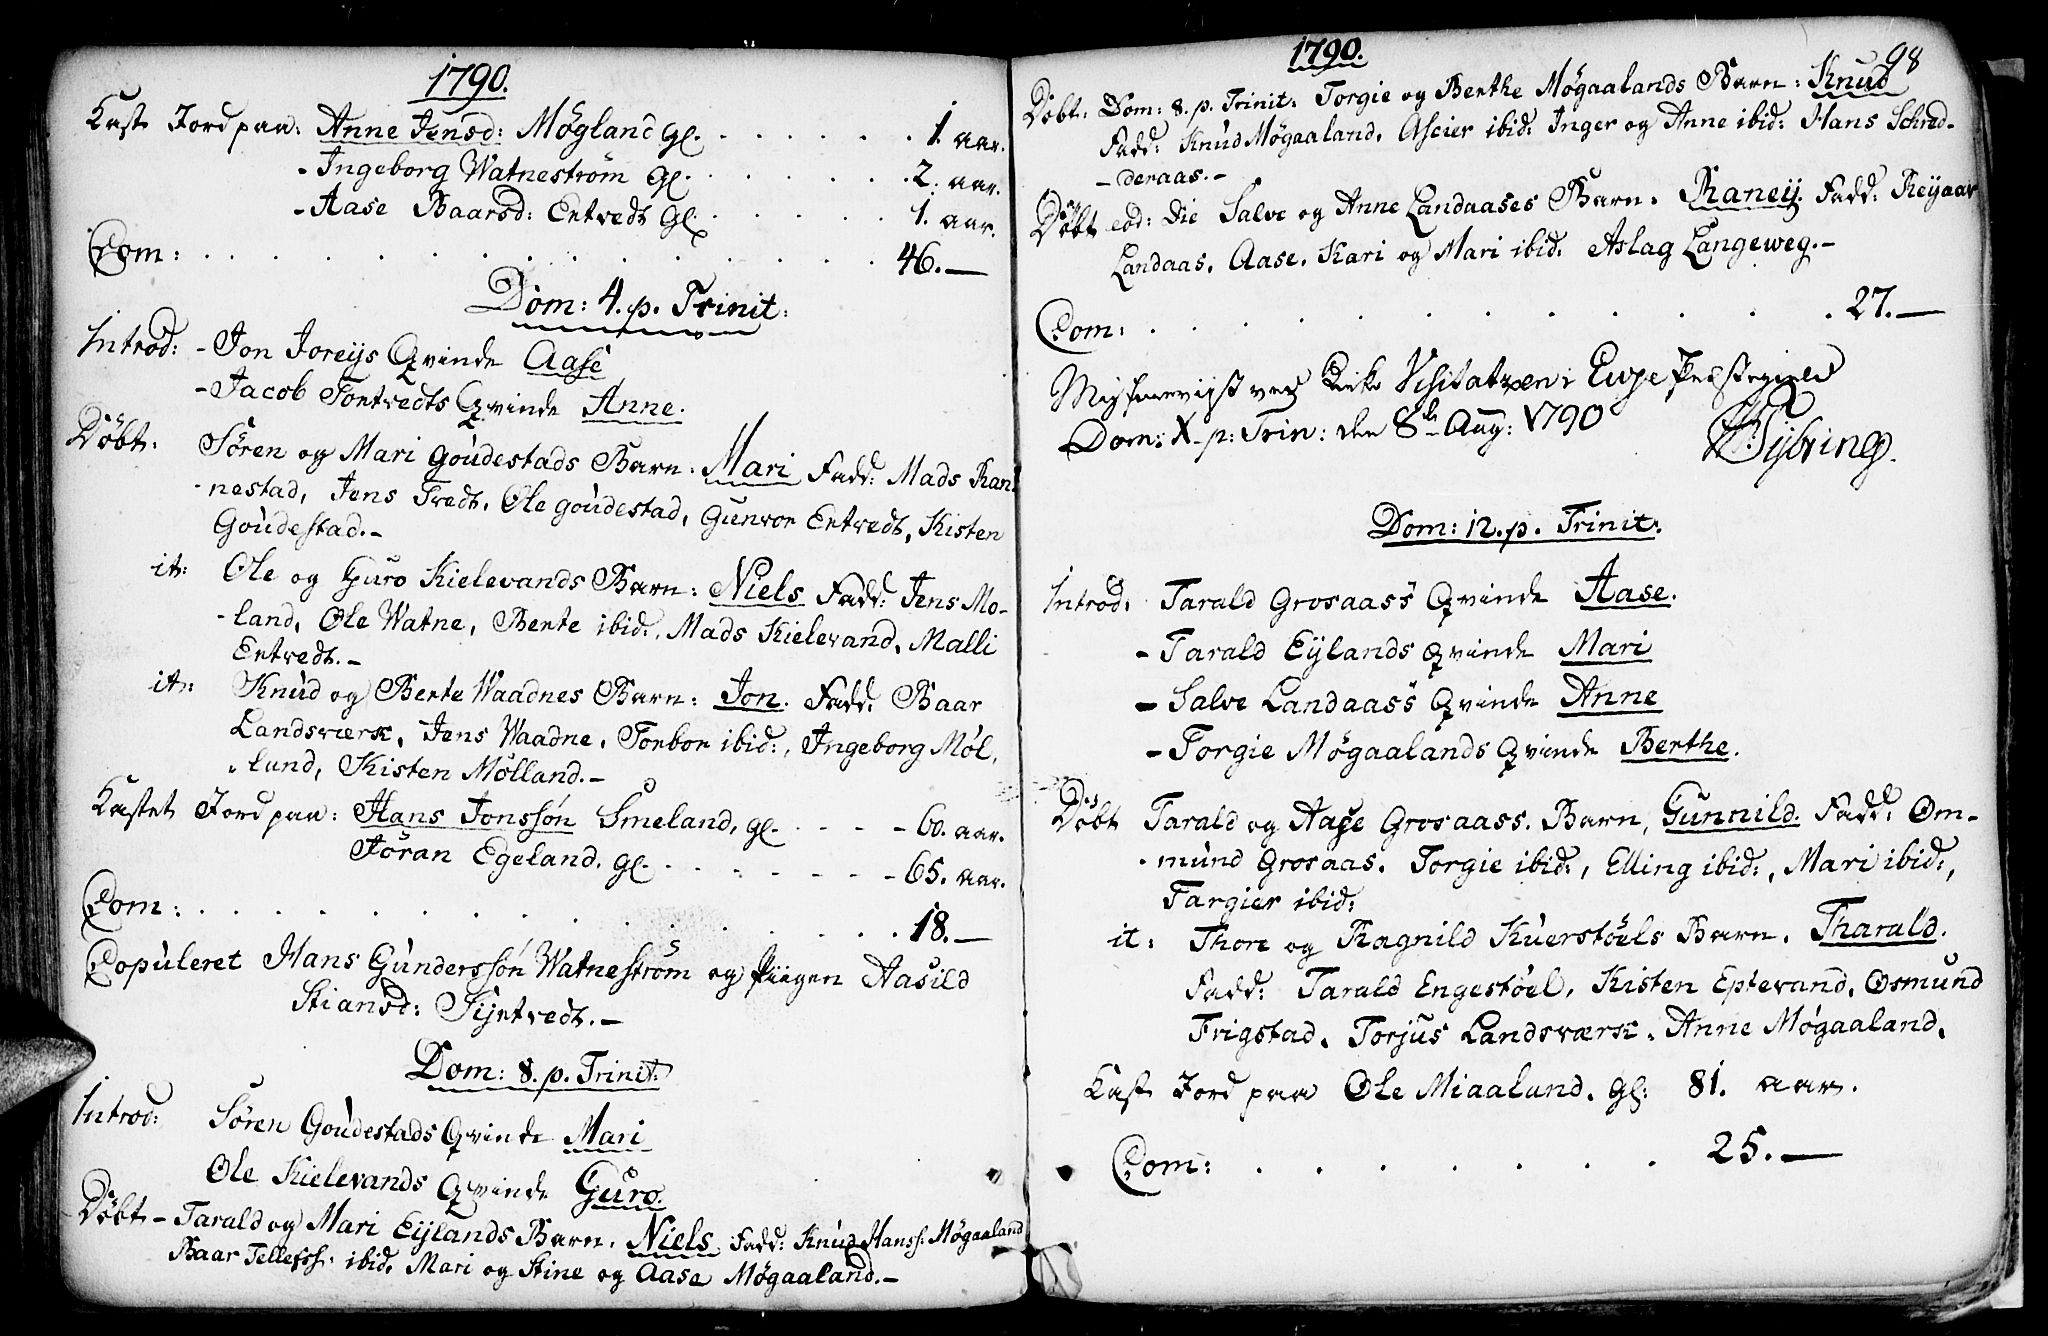 1790.
Kast Jord paa: Anne Jensd: Møgland gl. . . . . . . 1. aar.
- Ingeborg Watneström gl. . . . . . . . 2. aar.
- Aase Baarsd: Ertvedt gl. . . . . . . 1. aar.
Com: . . . . . . . . . . . . . 46.—
Dom: 4. p. Trinit:
Introd: - Jon Joreijs Qvinde Aase
- Jacob Tortvedts Qvinde Anne.
Döbt: Sören og Mari Goudestads Barn: Mari Fadd: Mads Ran-
-nestad, Jens Tredt, Ole Goudestad, Gunvor Ertvedt, Kisten
Goudestad.-
it: Ole og Guro Kielevands Barn: Niels Fadd: Jens Mo-
-land, Ole Watne, Berte ibid:, Mads Kielevand, Malli
Ertvedt.-
it: Knud og Berte Waadnes Barn: Jon. Fadd: Baar
Landsværk, Jens Waadne, Torbor ibid:, Ingeborg Møl,
-lund, Kisten Mölland.-
Kastet Jord paa: Hans Jonssön Smeland, gl. - - - - 60. aar.
Jöran Egeland, gl. . . . . . . - 65. aar.
Com: . . . . . . . . . . . . . 18.—
Copuleret Hans Gunderssön Watneström og Piigen Aasild
Stiansd: Sijrtvedt.-
Dom: 8. p. Trinit:
Introd: Sören Goudestads Qvinde Mari
Ole Kielevands Qvinde Guro.
Döbt - Tarald og Mari Eijlands Barn. Niels Fadd: Knud Hanss: Møgaaland
Baar Tellefss: ibid, Mari og Stine og Aase Møgaaland.-
1790. 98
Döbt: Dom: 8. p. Trinit: Torgie og Berthe Møgaalands Barn: Knud
Fadd: Knud Møgaaland, Aseier ibid: Inger og Anne ibid: Hans Schred-
-deraas.-
Döbt eod: die Salve og Anne Landaases Barn. Raneij. Fadd: Reijaar
Landaas, Aase, Kari og Mari ibid, Aslag Langeweg.-
Com: . . . . . . . . . . 27.—
Mig foreviist ved Kirke Visitatzen i Evje Præstegield
Dom: X. p: Trin: den 8de Aug: 1790
Dom: 12. p. Trinit:
Introd: Tarald Grosaass Qvinde Aase.
- Tarald Eijlands Qvinde Mari
- Salve Landaass Qvinde Anne
- Torgie Møgaalands Qvinde Berthe.
Döbt Tarald og Aase Grosaass. Barn, Gunnild. Fadd: Om-
-mund Grosaas. Torgie ibid:, Elling ibid:, Mari ibid:,
Targier ibid:
it: Thore og Ragnild Kuerstöels Barn. Tharald.
Fadd: Tarald Engestöel, Kisten Eptevand, Osmund
Frigstad, Torjus Landsværk, Anne Møgaaland.
Kast Jord paa Ole Miaalund. gl: 81. aar.
Com: . . . . . . . 25.—